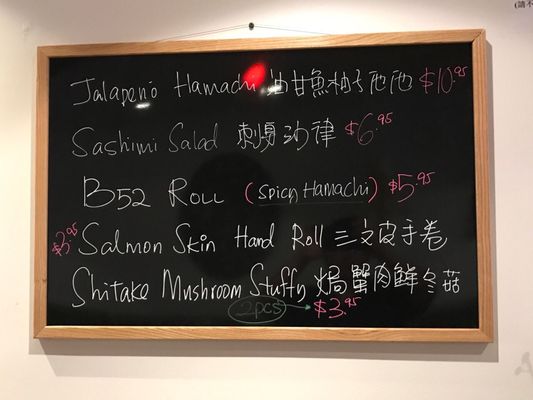 Jalapeño Hamachi 油甘魚柚子池池 $10.95
Sashimi Salad 刺身沙律 $6.95
B52 Roll (Spicy Hamachi) $5.95
$3.95 Salmon Skin Hand Roll 三文皮手卷
Shitake Mushroom Stuffy 焗蟹肉鮮冬菇
2pcs $3.95